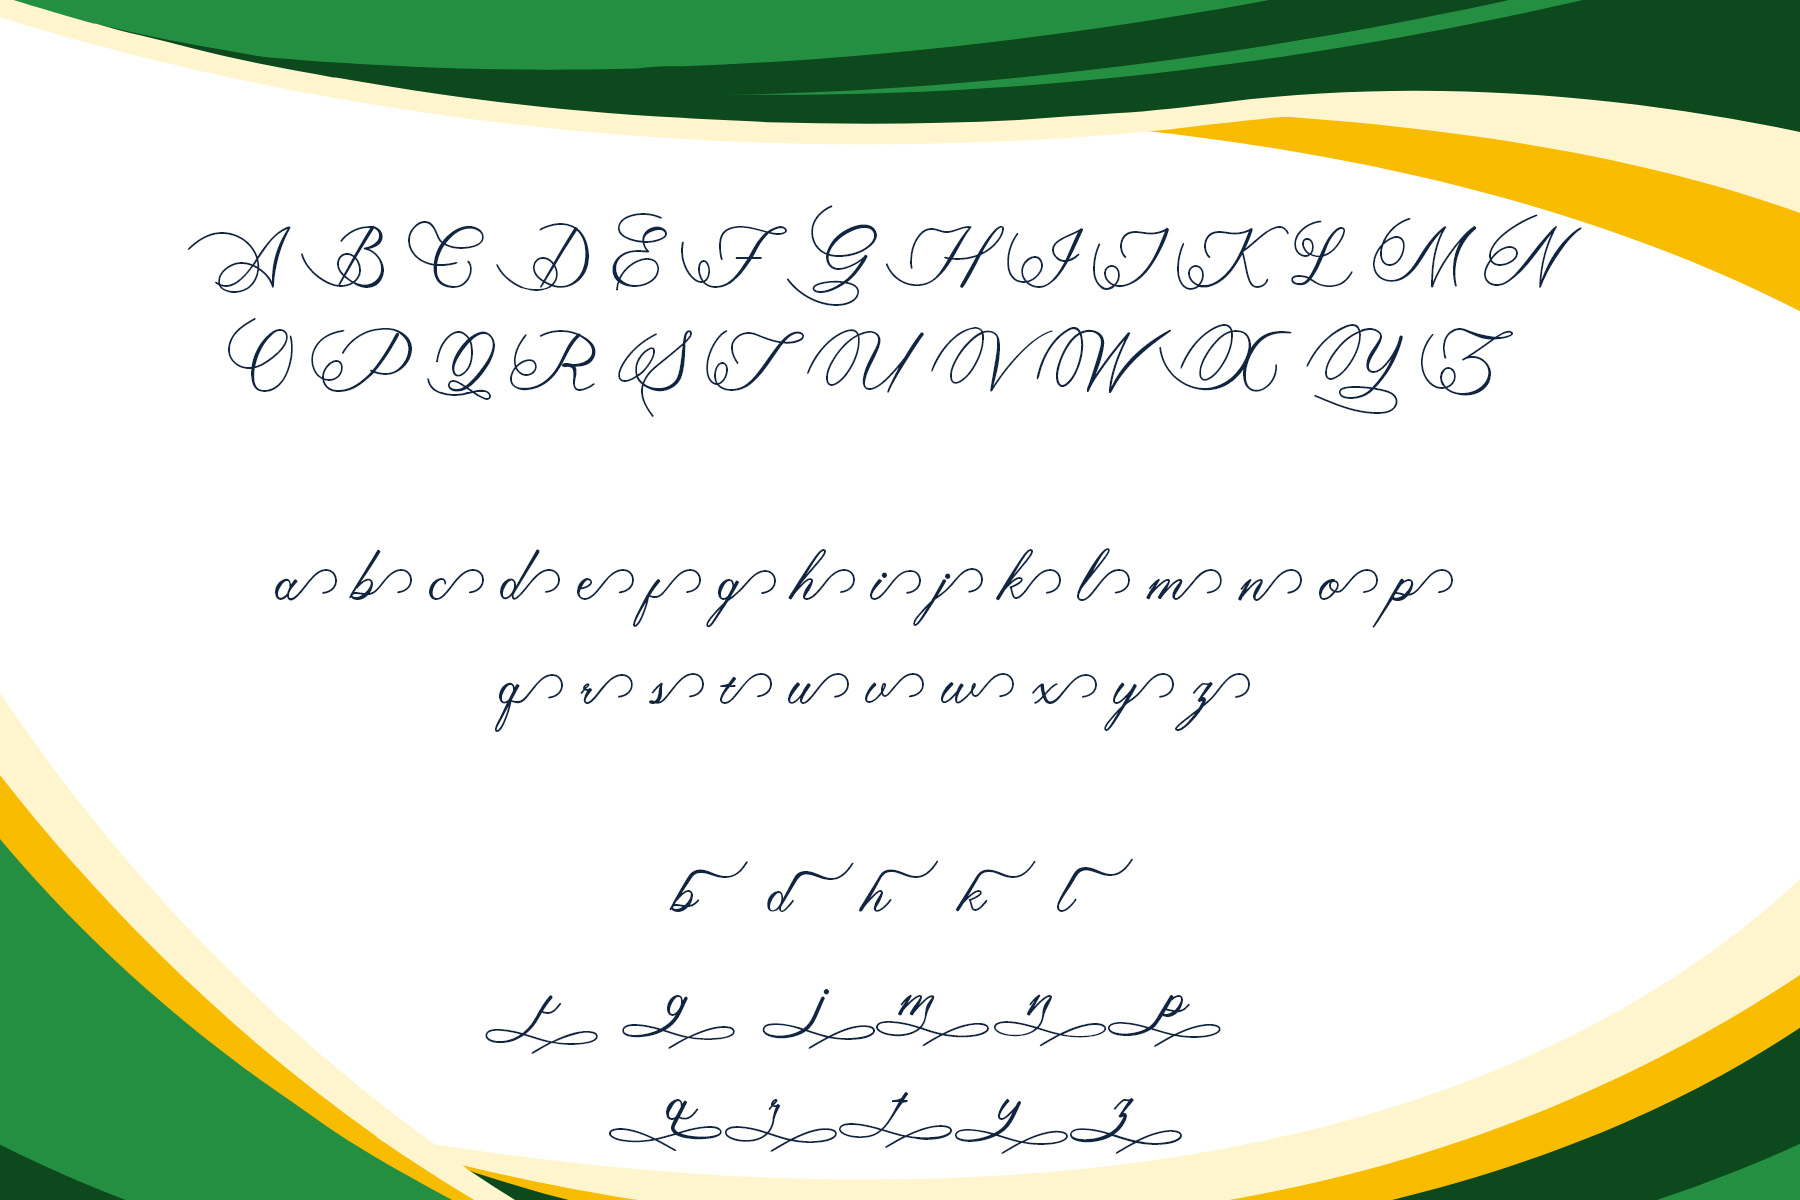 A B C D E F G H I J K L M N
O P Q R S T U V W X Y Z
a b c d e f g h i j k l m n o p
q r s t u v w x y z
b d h k l
f g j m n p
q r t y z